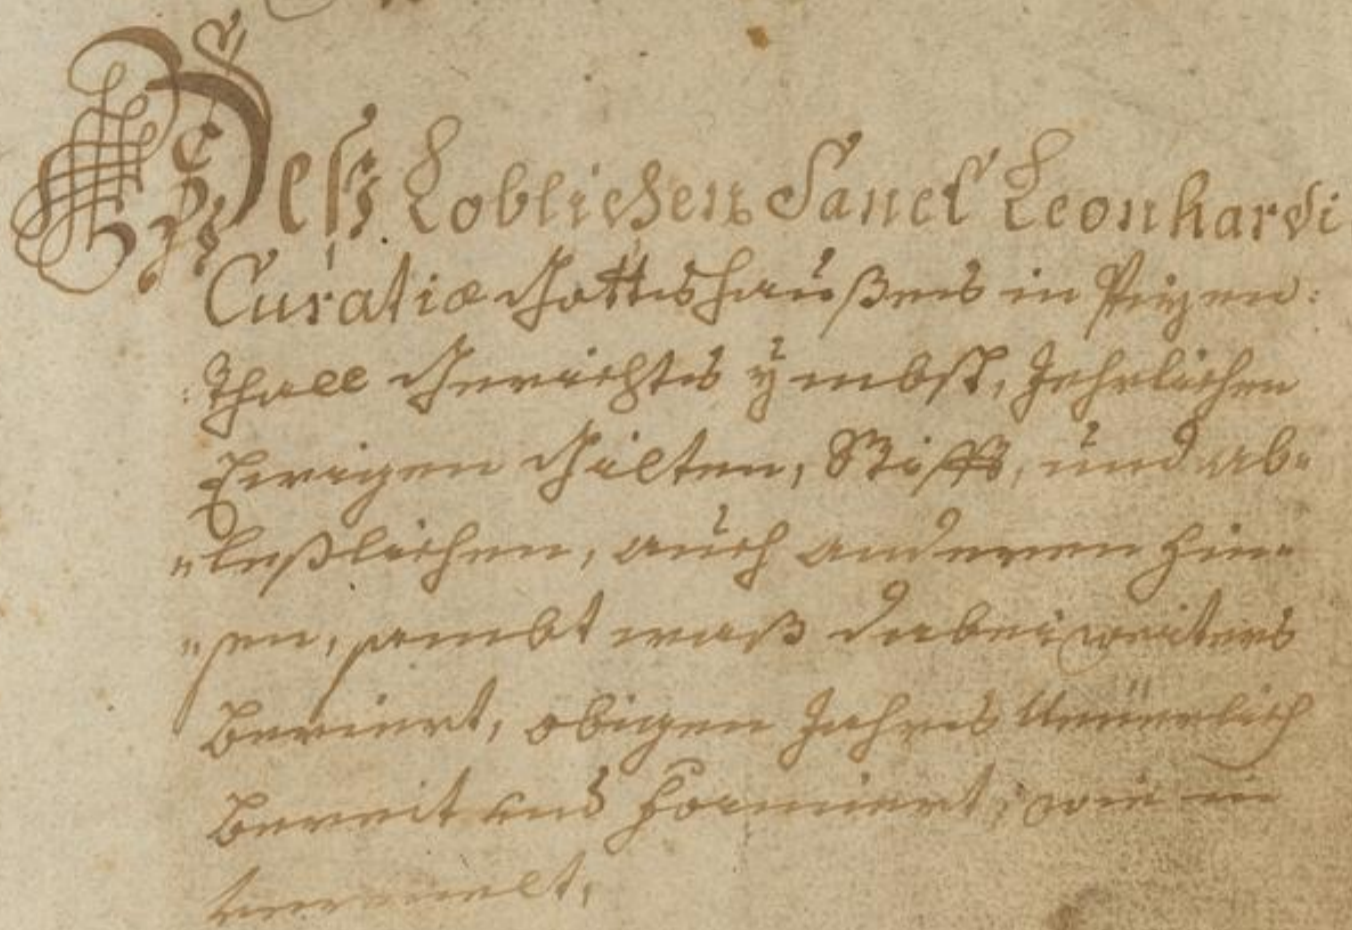 Deß Loblichen Sanct Leonhardi
Curatiæ Gottshaußes in Pizen:
:Thall Gerichts ÿmbst, Jehrlichen
Ewigen Gilten, Stifft, und ab-
"leßlichen, auch anderen Zin-
"sen, sambt waß dabei weiters
Beriert, obigen Jahrs
Bereit und formiert, wie in